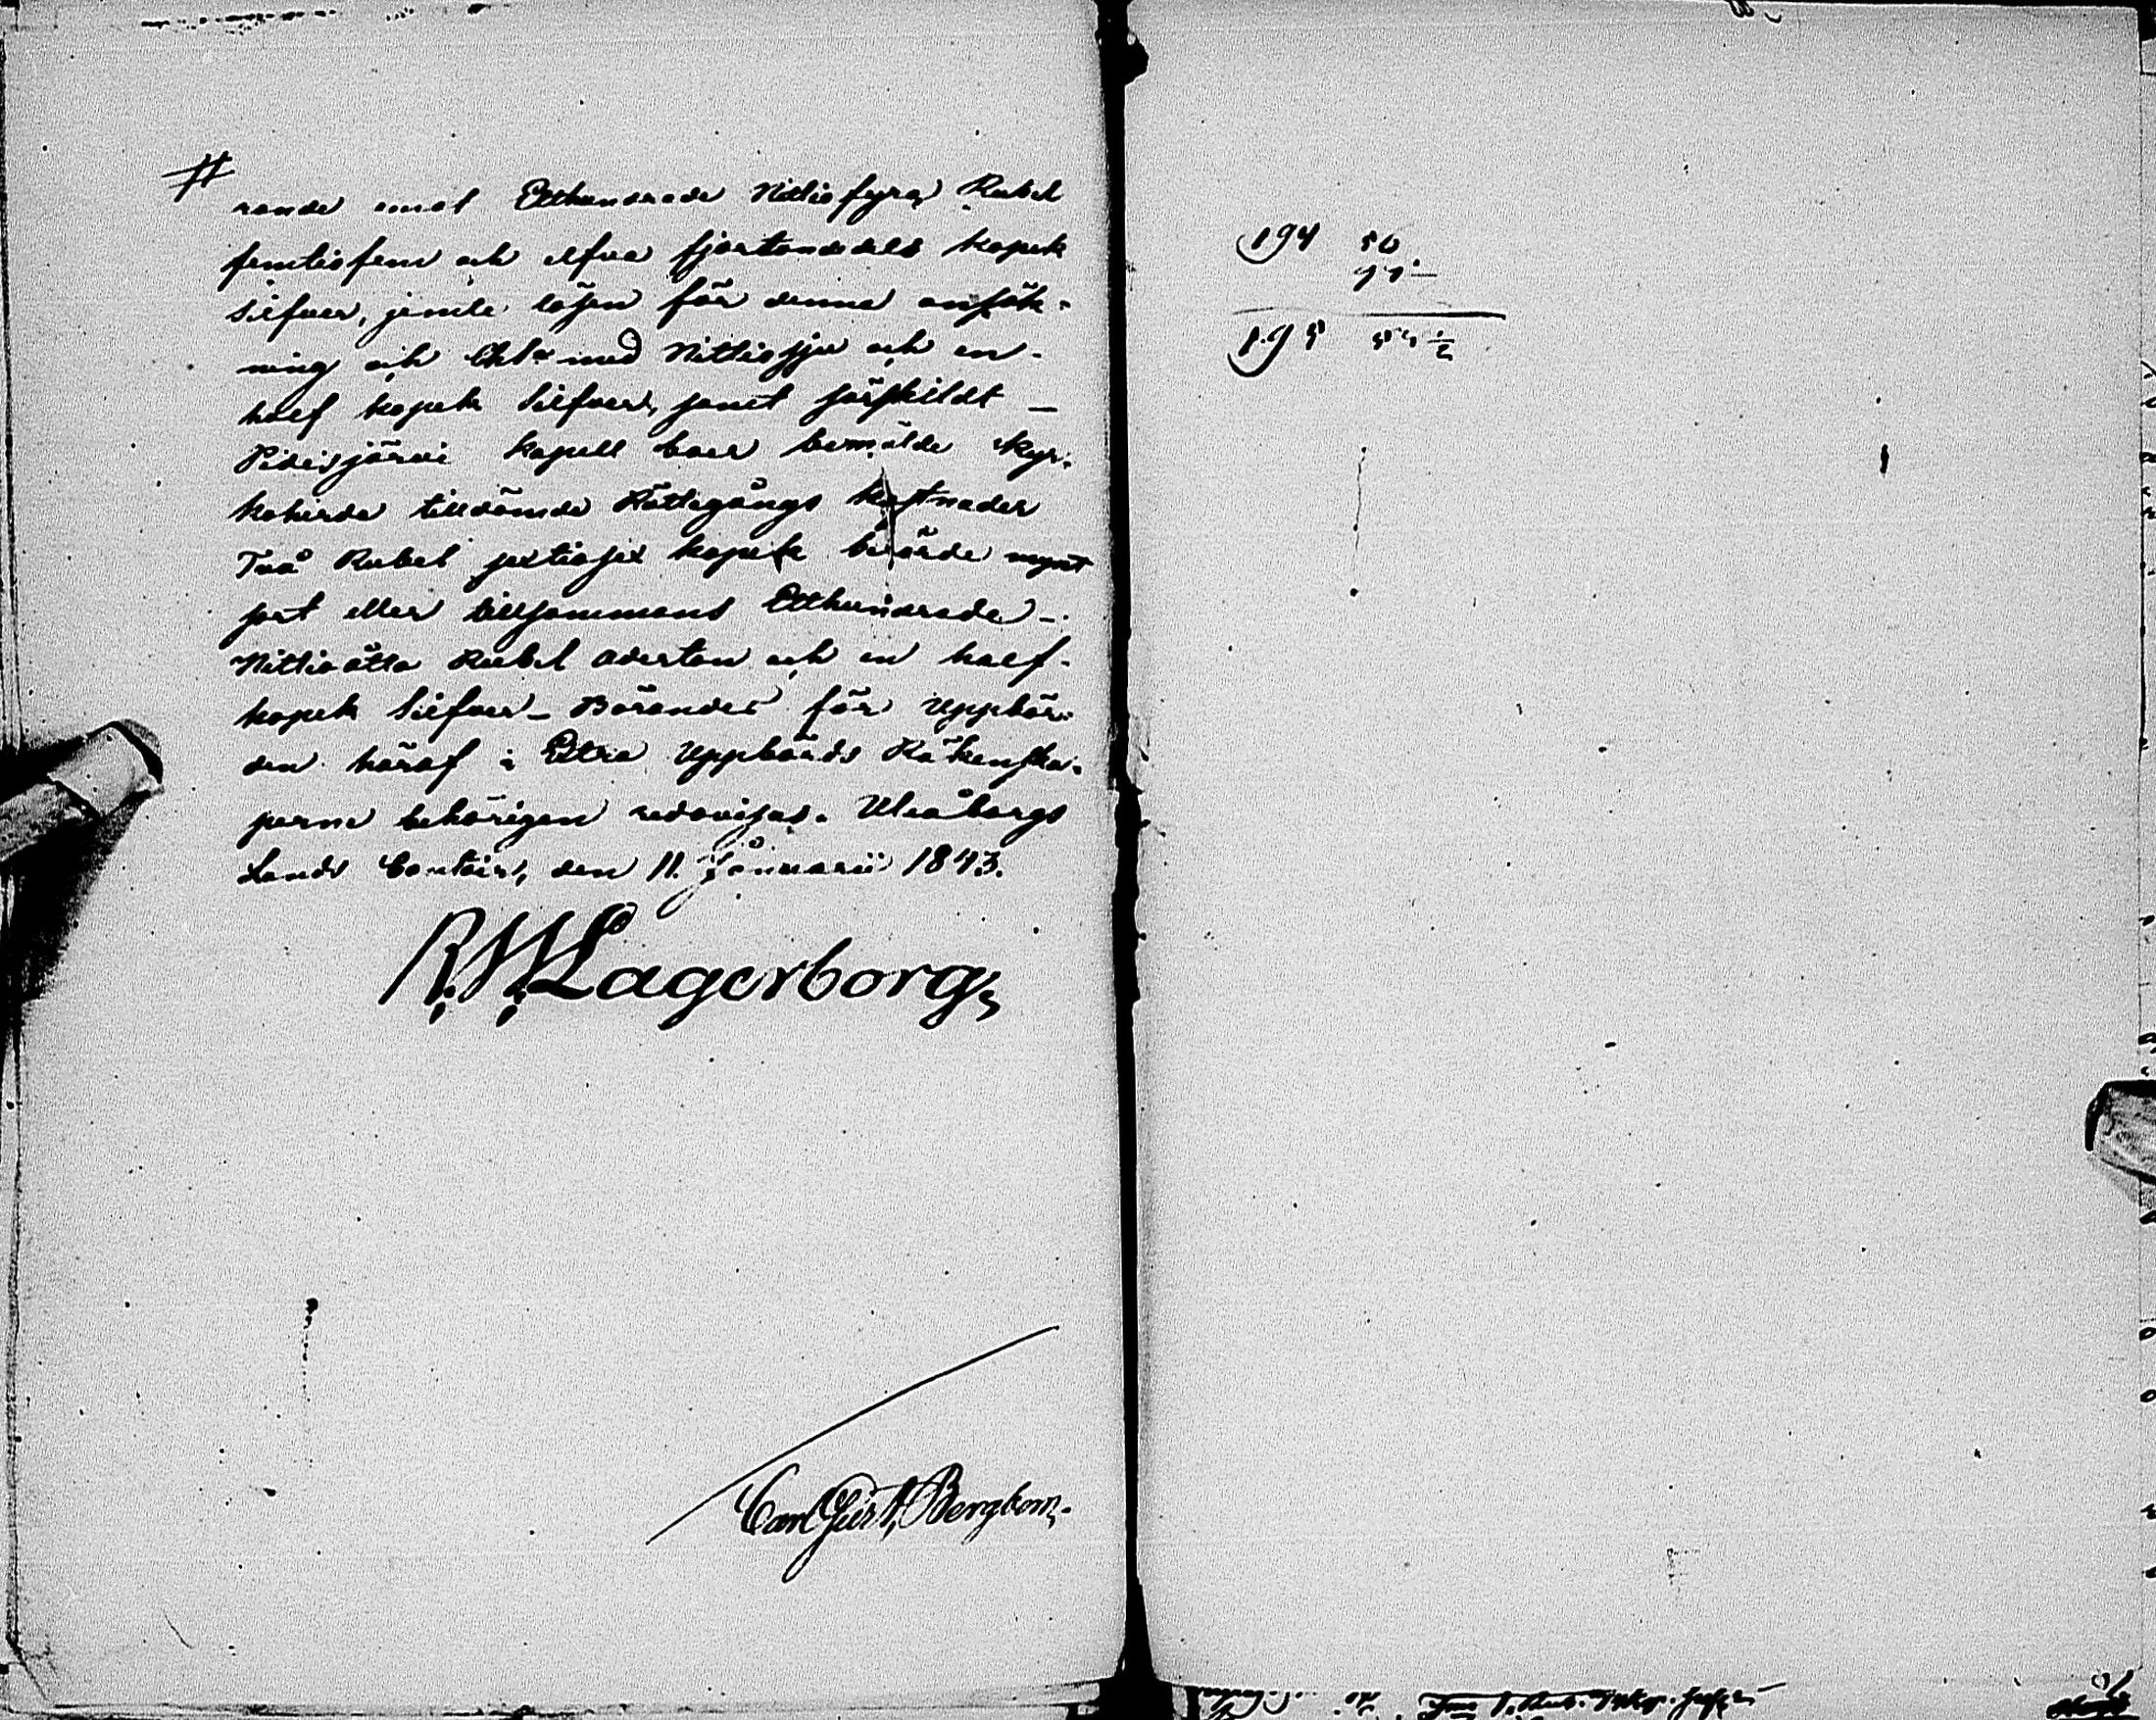 rande emot Etthundrade Nittiofyra Rubel
femtiofem och elfva fjortondedels kopek
Silfver, jemte lösen för denna ansök-
ning och Chta med Nittiosju och en-
half kopek Silfver, samt särskildt -
Pidisjärvi kapell boer bemälde Kyr-
koherde tilldömde Rättegångs kostnader
Två Rubel sextiosex kopek berörde mynt
sort eller tillsammans Etthundrade -
Nittioåtta Rubel aderton och en half-
kopek Silfver - Börandes för uppbör-
den häraf i Extra Uppbörds Räkenska-
perne behörigen redovisas. Uleåborgs
Lands Contoir, den 11. Januarii 1843.
R. W. Lagerborg
Carl Gust. Bergbom.
194 56
97 -
195 53 1/2